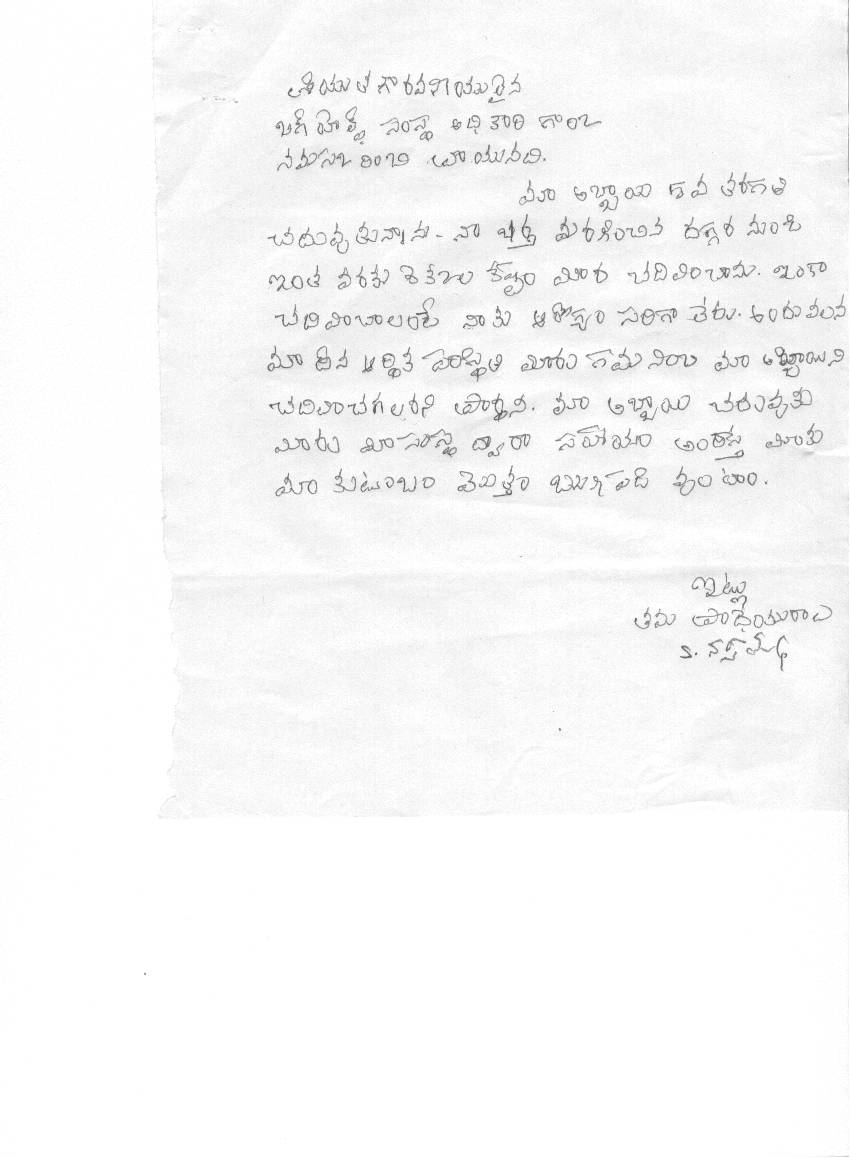 శ్రీయుత గౌరవనీయులైన
సంస్థ అధికారి గారు
నమస్కరించి వ్రాయునది.
మా అబ్బాయి వ తరగతి
చదువుతున్నాడు - నా భర్త మరణించిన దగ్గర నుంచి
ఇంత వరకు కష్టం మీద చదివించాను. ఇంకా
చదివించాలంటే నాకు ఆరోగ్యం సరిగా లేదు. అందువలన
మా దీన ఆర్థిక పరిస్థితి మీరు గమనించి మా అబ్బాయిని
చదివించగలరని ప్రార్థన. మా అబ్బాయి చదువుకు
మీరు మీ సంస్థ ద్వారా సహాయం అందిస్తే మీకు
మా కుటుంబం ఋణపడి వుంటాం.
ఇట్లు
తమ విధేయురాలు
S.